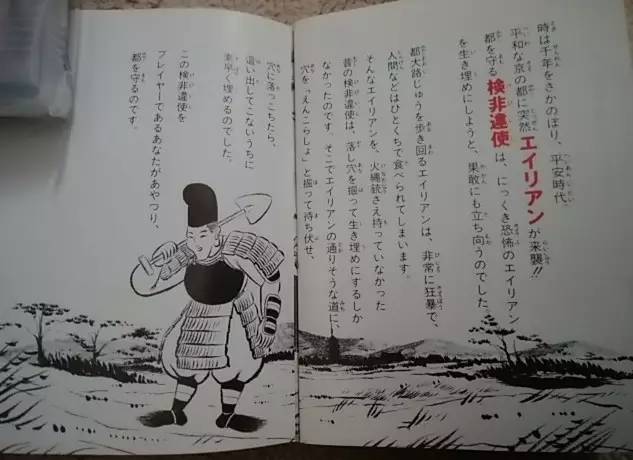 時は千年をさかのぼり、平安時代、
平和な京の都に突然エイリアンが来襲!!
都を守る検非違使は、にっくき恐怖のエイリアン
を生き埋めにしようと、果敢にも立ち向うのでした。
都大路じゅうを歩き回るエイリアンは、非常に狂暴で、
人間などはひとくちで食べられてしまいます。
そんなエイリアンを、火縄銃さえ持っていなかった
昔の検非違使は、落し穴を掘って生き埋めにするしか
なかったのです。そこでエイリアンの通りそうな道に、
穴を「えんこらしょ」と掘って待ち伏せ、
穴に落っこちたら、
這い出してこないうちに
素早く埋めるのでした。
この検非違使を
プレイヤーであるあなたがあやつり、
都を守るのです。